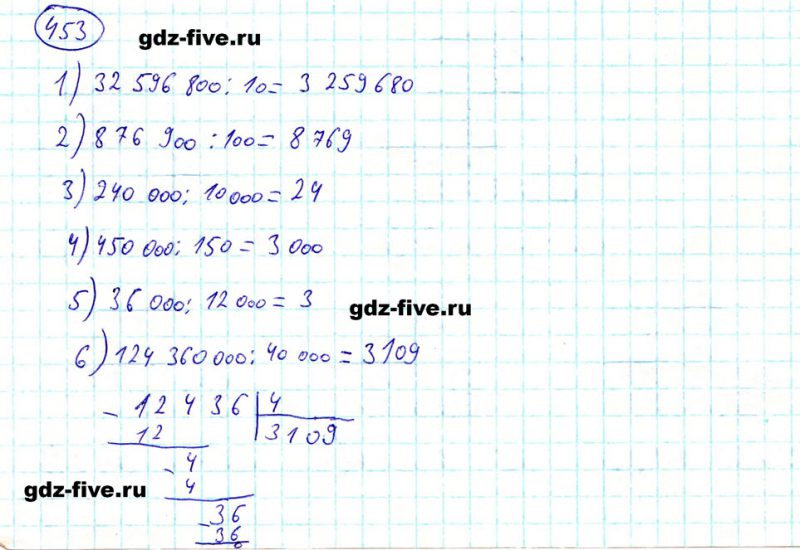 453
gdz-five.ru
1) 32 596 800 : 10 = 3 259 680
2) 876 900 : 100 = 8 769
3) 240 000 : 10 000 = 24
4) 450 000 : 150 = 3 000
5) 36 000 : 12 000 = 3
gdz-five.ru
6) 124 360 000 : 40 000 = 3109
- 12 4 36 | 4
12 | 3109
- 4
4
gdz-five.ru
- 36
36
0